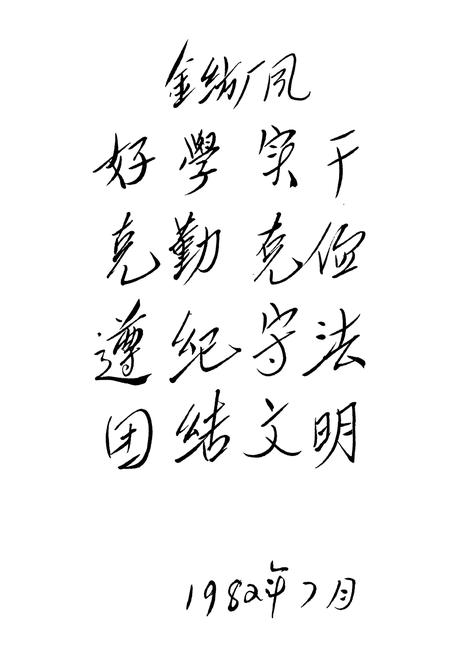 金紡厂风
好學实干
克勤克俭
遵紀守法
团結文明
1982年7月